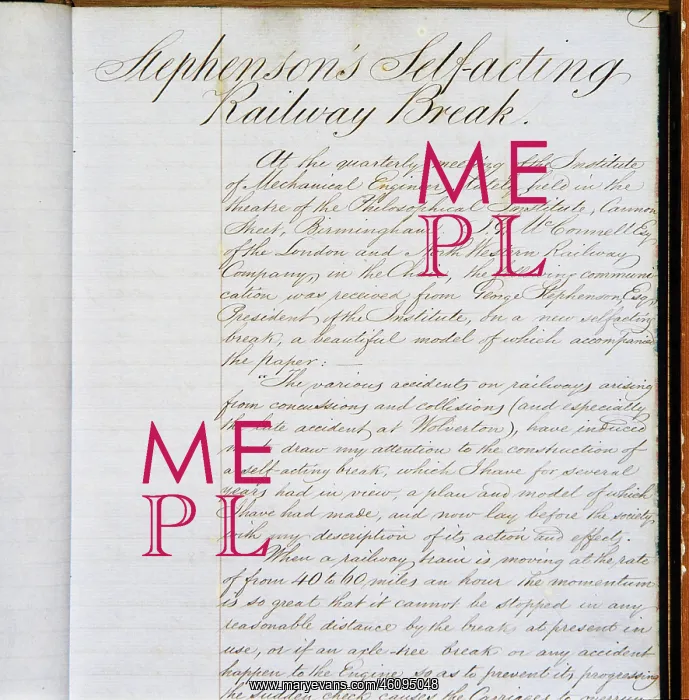 Stephenson's Self-acting
Railway Break.
At the quarterly meeting of the Institute
of Mechanical Engineers, lately held in the
theatre of the Philosophical Institute, Cannon
Street, Birmingham, McConnell Esq
of the London and North Western Railway
Company, in the Chair, the following communi
cation was received from George Stephenson Esq,
President of the Institute, on a new selfacting
break, a beautiful model of which accompanied
the paper:
"The various accidents on railways arising
from concussions and collisions (and especially
the late accident at Wolverton), have induced
me to draw my attention to the construction of
a self-acting break, which I have for several
years had in view, a plan and model of which
I have had made, and now lay before the society,
with my description of its action and effects.
When a railway train is moving at the rate
of from 40 to 60 miles an hour the momentum
is so great that it cannot be stopped in any
reasonable distance by the break at present in
use, or if an axle-tree break or any accident
happen to the Engine so as to prevent its progressing
the sudden check causes the Carriages
ME
PL
ME
PL
www.maryevans.com/46095048